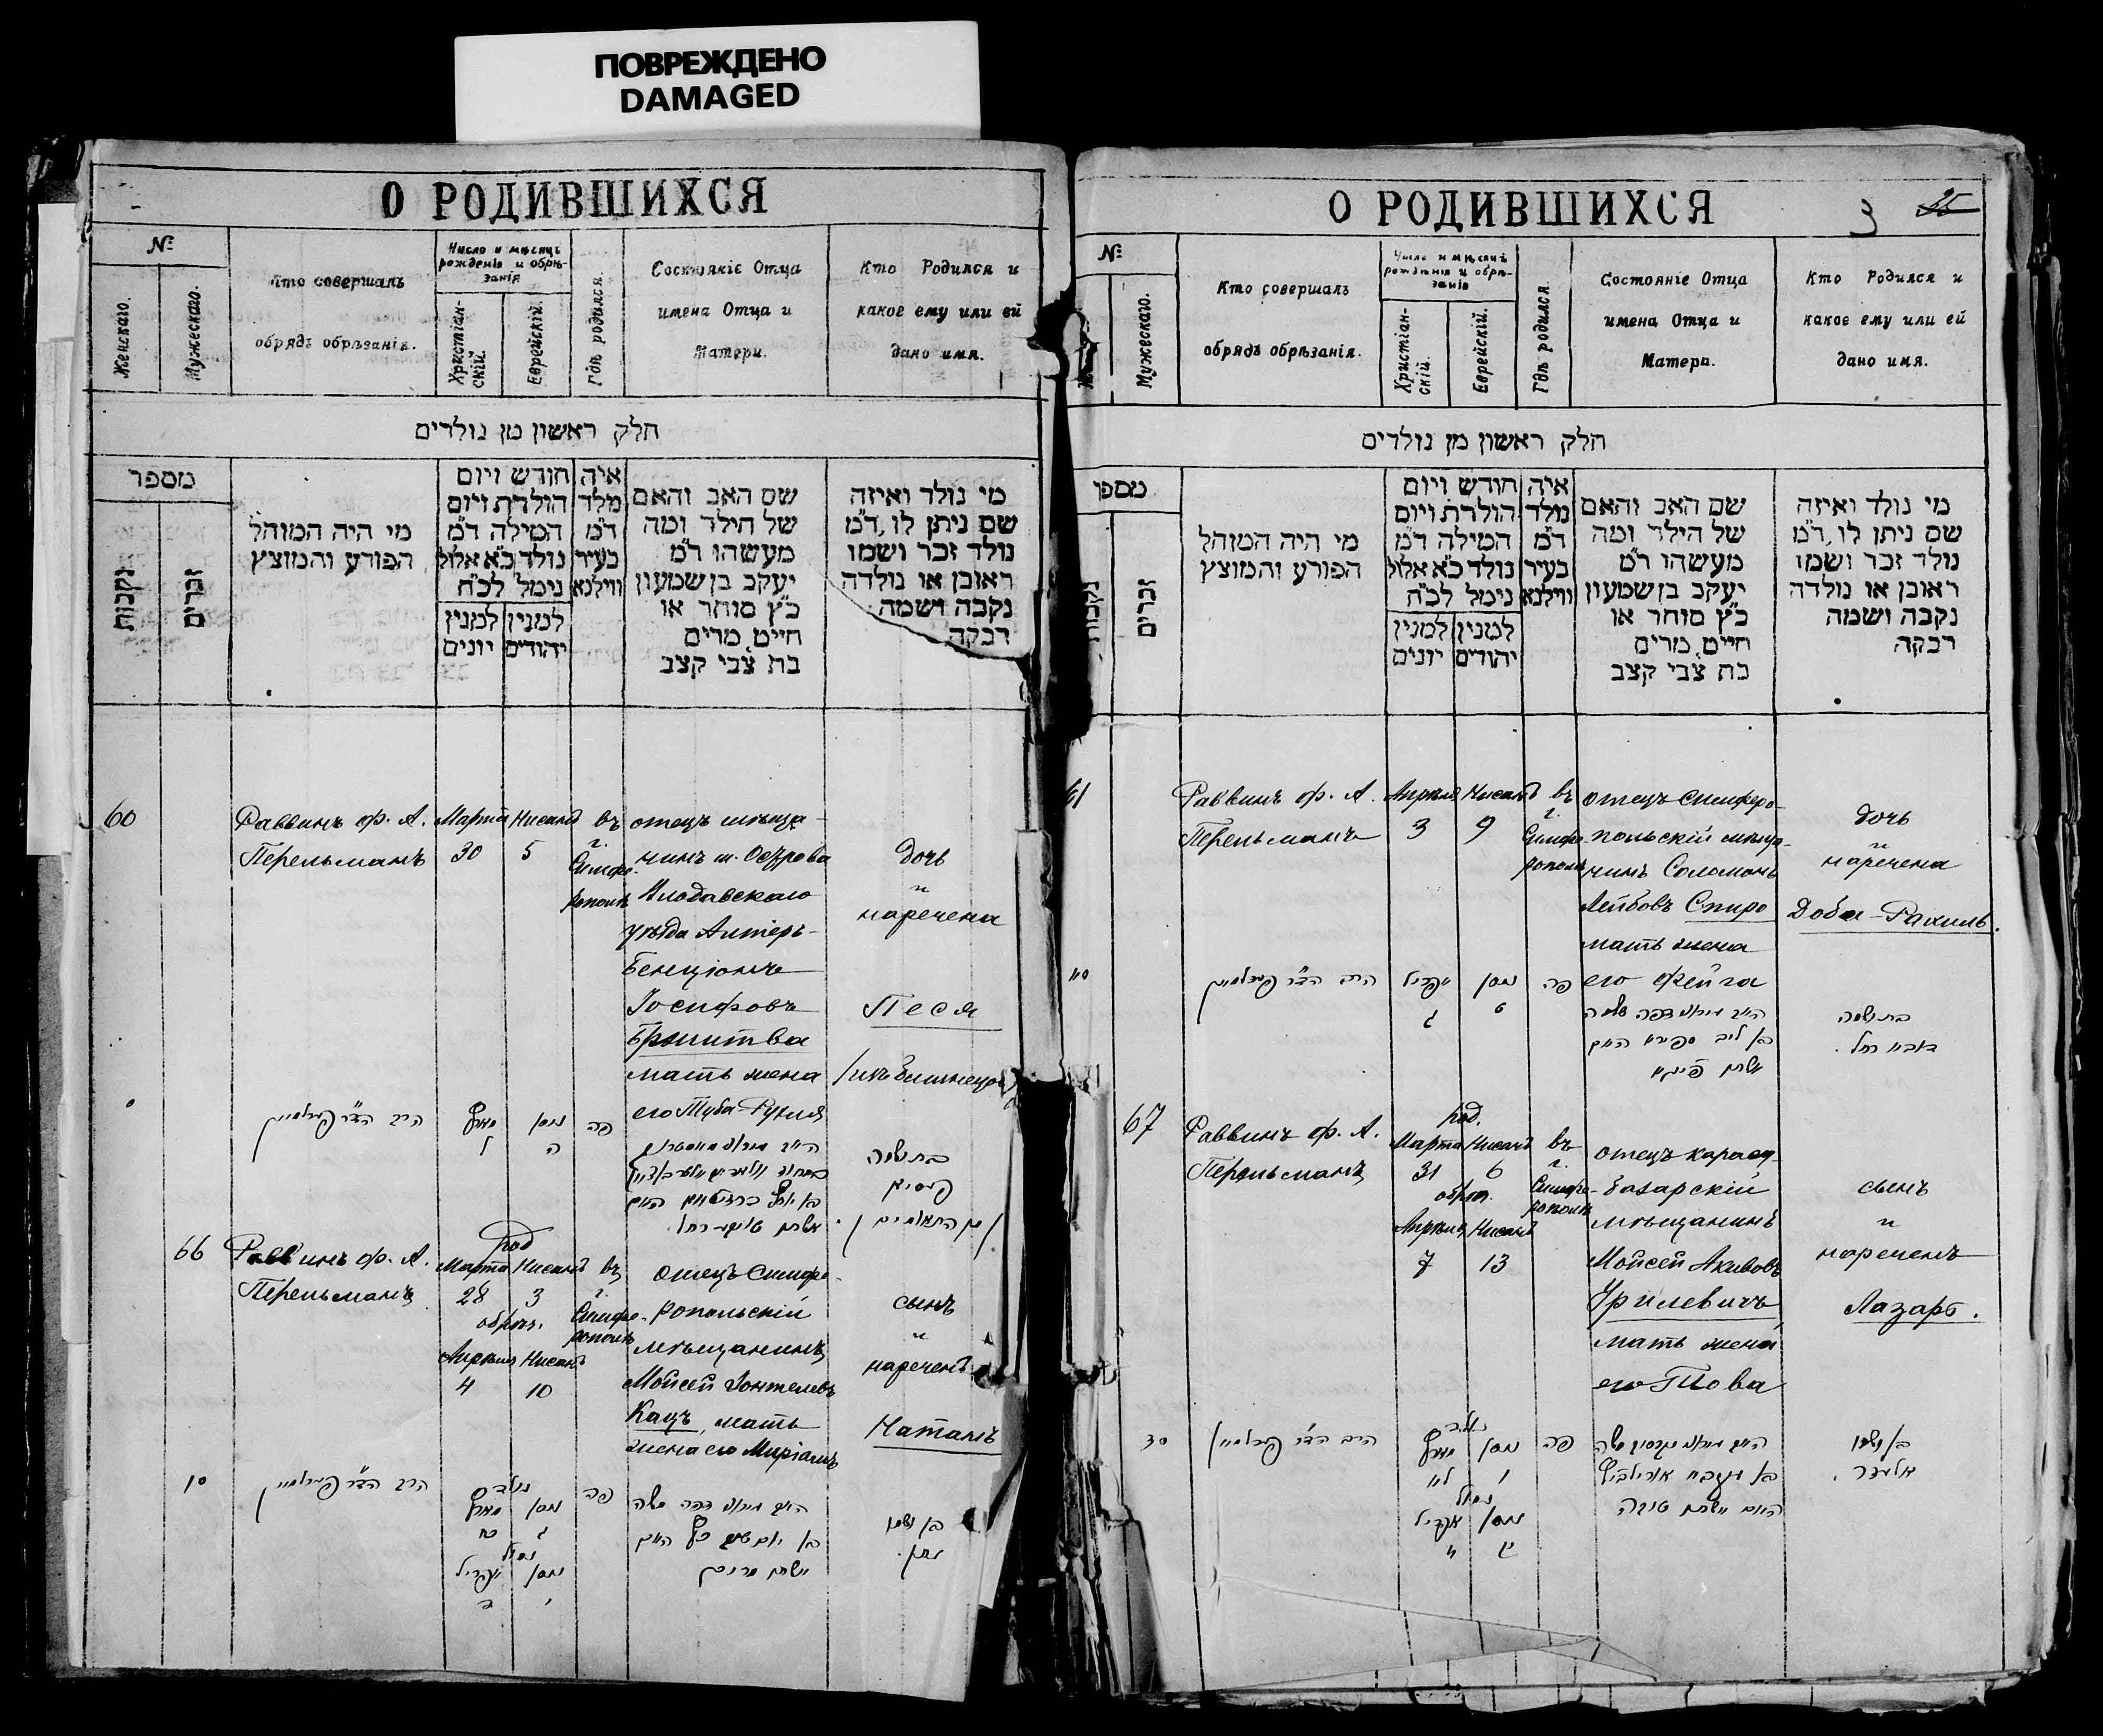 ПОВРЕЖДЕНО
DAMAGED
О РОДИВШИХСЯ
№
Женскаго.
Мужескаго.
Кто совершалъ
обрядъ обрѣзанія.
Число и мѣсяцъ
рожденія и обрѣ-
занія
Христіан-
скій.
Еврейскій.
Гдѣ родился.
Состояніе Отца
имена Отца и
Матери.
Кто Родился и
какое ему или ей
дано имя.
חלק ראשון מן נולדים
מספר
נקבות
זכרים
מי היה המוהל
הפורע והמוצץ
חודש ויום
הולדת ויום
המילה ד״מ
נולד כ״א אלול
נימל לכ״ח
למנין
יהודים
למנין
יונים
איה
מלד
ד״מ
בעיר
ווילנא
שם האב והאם
של הילד ומה
מעשהו ד״מ
יעקב בן שמעון
כ״ץ סוחר או
חייט, מרים
בת צבי קצב
מי נולד ואיזה
שם ניתן לו, ד״מ
נולד זכר ושמו
ראובן או נולדה
נקבה ושמה
רבקה
60
Раввинъ ф. А.
Перельманъ
Марта
30
Нисанъ
5
въ
г.
Симфе-
рополѣ
отецъ мѣща-
чинъ м. Острова
Влодавскаго
уѣзда Алтеръ-
Бенціонъ
Іосифовъ
мать жена
его Туба-Рухля
дочь
и
наречена
Песя
הרב הד״ר פערלמאן
מארץ
ל
ניסן
ה
פה
בת ושמה
פעסיא
66
Раввинъ ф. А.
Перельманъ
род
Марта Нисанъ
28 3
обрѣз.
Апрѣля Нисанъ
4 10
въ
г.
Симфе-
рополѣ
отецъ симфе-
ропольскій
мѣщанинъ
Мойсей
Кацъ, мать
жена его Миріамъ
сынъ
и
нареченъ
Натанъ
הרב הד״ר פערלמאן
נולד
מארץ ניסן
כח ג
נימול
אפריל ניסן
ד י
פה
בן ושמו
נתן.
О РОДИВШИХСЯ
3 25
№
Мужескаго.
Кто совершалъ
обрядъ обрѣзанія.
Число и мѣсяцъ
рожденія и обрѣ-
занія
Христіан-
скій.
Еврейскій.
Гдѣ родился.
Состояніе Отца
имена Отца и
Матери.
Кто Родился и
какое ему или ей
дано имя.
חלק ראשון מן נולדים
מספר
זכרים
מי היה המוהל
הפורע והמוצץ
חודש ויום
הולדת ויום
המילה ד״מ
נולד כ״א אלול
נימל לכ״ח
למנין
יהודים
למנין
יונים
איה
מלד
ד״מ
בעיר
ווילנא
שם האב והאם
של הילד ומה
מעשהו ד״מ
יעקב בן שמעון
כ״ץ סוחר או
חייט, מרים
בת צבי קצב
מי נולד ואיזה
שם ניתן לו, ד״מ
נולד זכר ושמו
ראובן או נולדה
נקבה ושמה
רבקה
61
Раввинъ ф. А.
Перельманъ
Апрѣля
3
Нисанъ
9
въ
г.
Симфе-
рополѣ
отецъ симферо-
польскій мѣща-
нинъ Соломонъ
Лейбовъ Спиро
мать жена
его Фейга
дочь
и
наречена
Доба-Рахиль.
הרב הד״ר פערלמאן
אפריל
ג
ניסן
ט
פה
בת ושמה
דאבא רחל.
67
Раввинъ ф. А.
Перельманъ
род.
Марта Нисанъ
31 6
обрѣз.
Апрѣля Нисанъ
7 13
въ
г.
Симфе-
рополѣ
отецъ карасу-
базарскій
мѣщанинъ
Мойсей Акивовъ
Урилевичъ
мать жена
его Това
сынъ
и
нареченъ
Лазарь.
הרב הד״ר פערלמאן
נולד
מארץ ניסן
לא ו
נימול
אפריל ניסן
פה
בן עקיבא אורילביץ
בן ושמו
אלעזר.